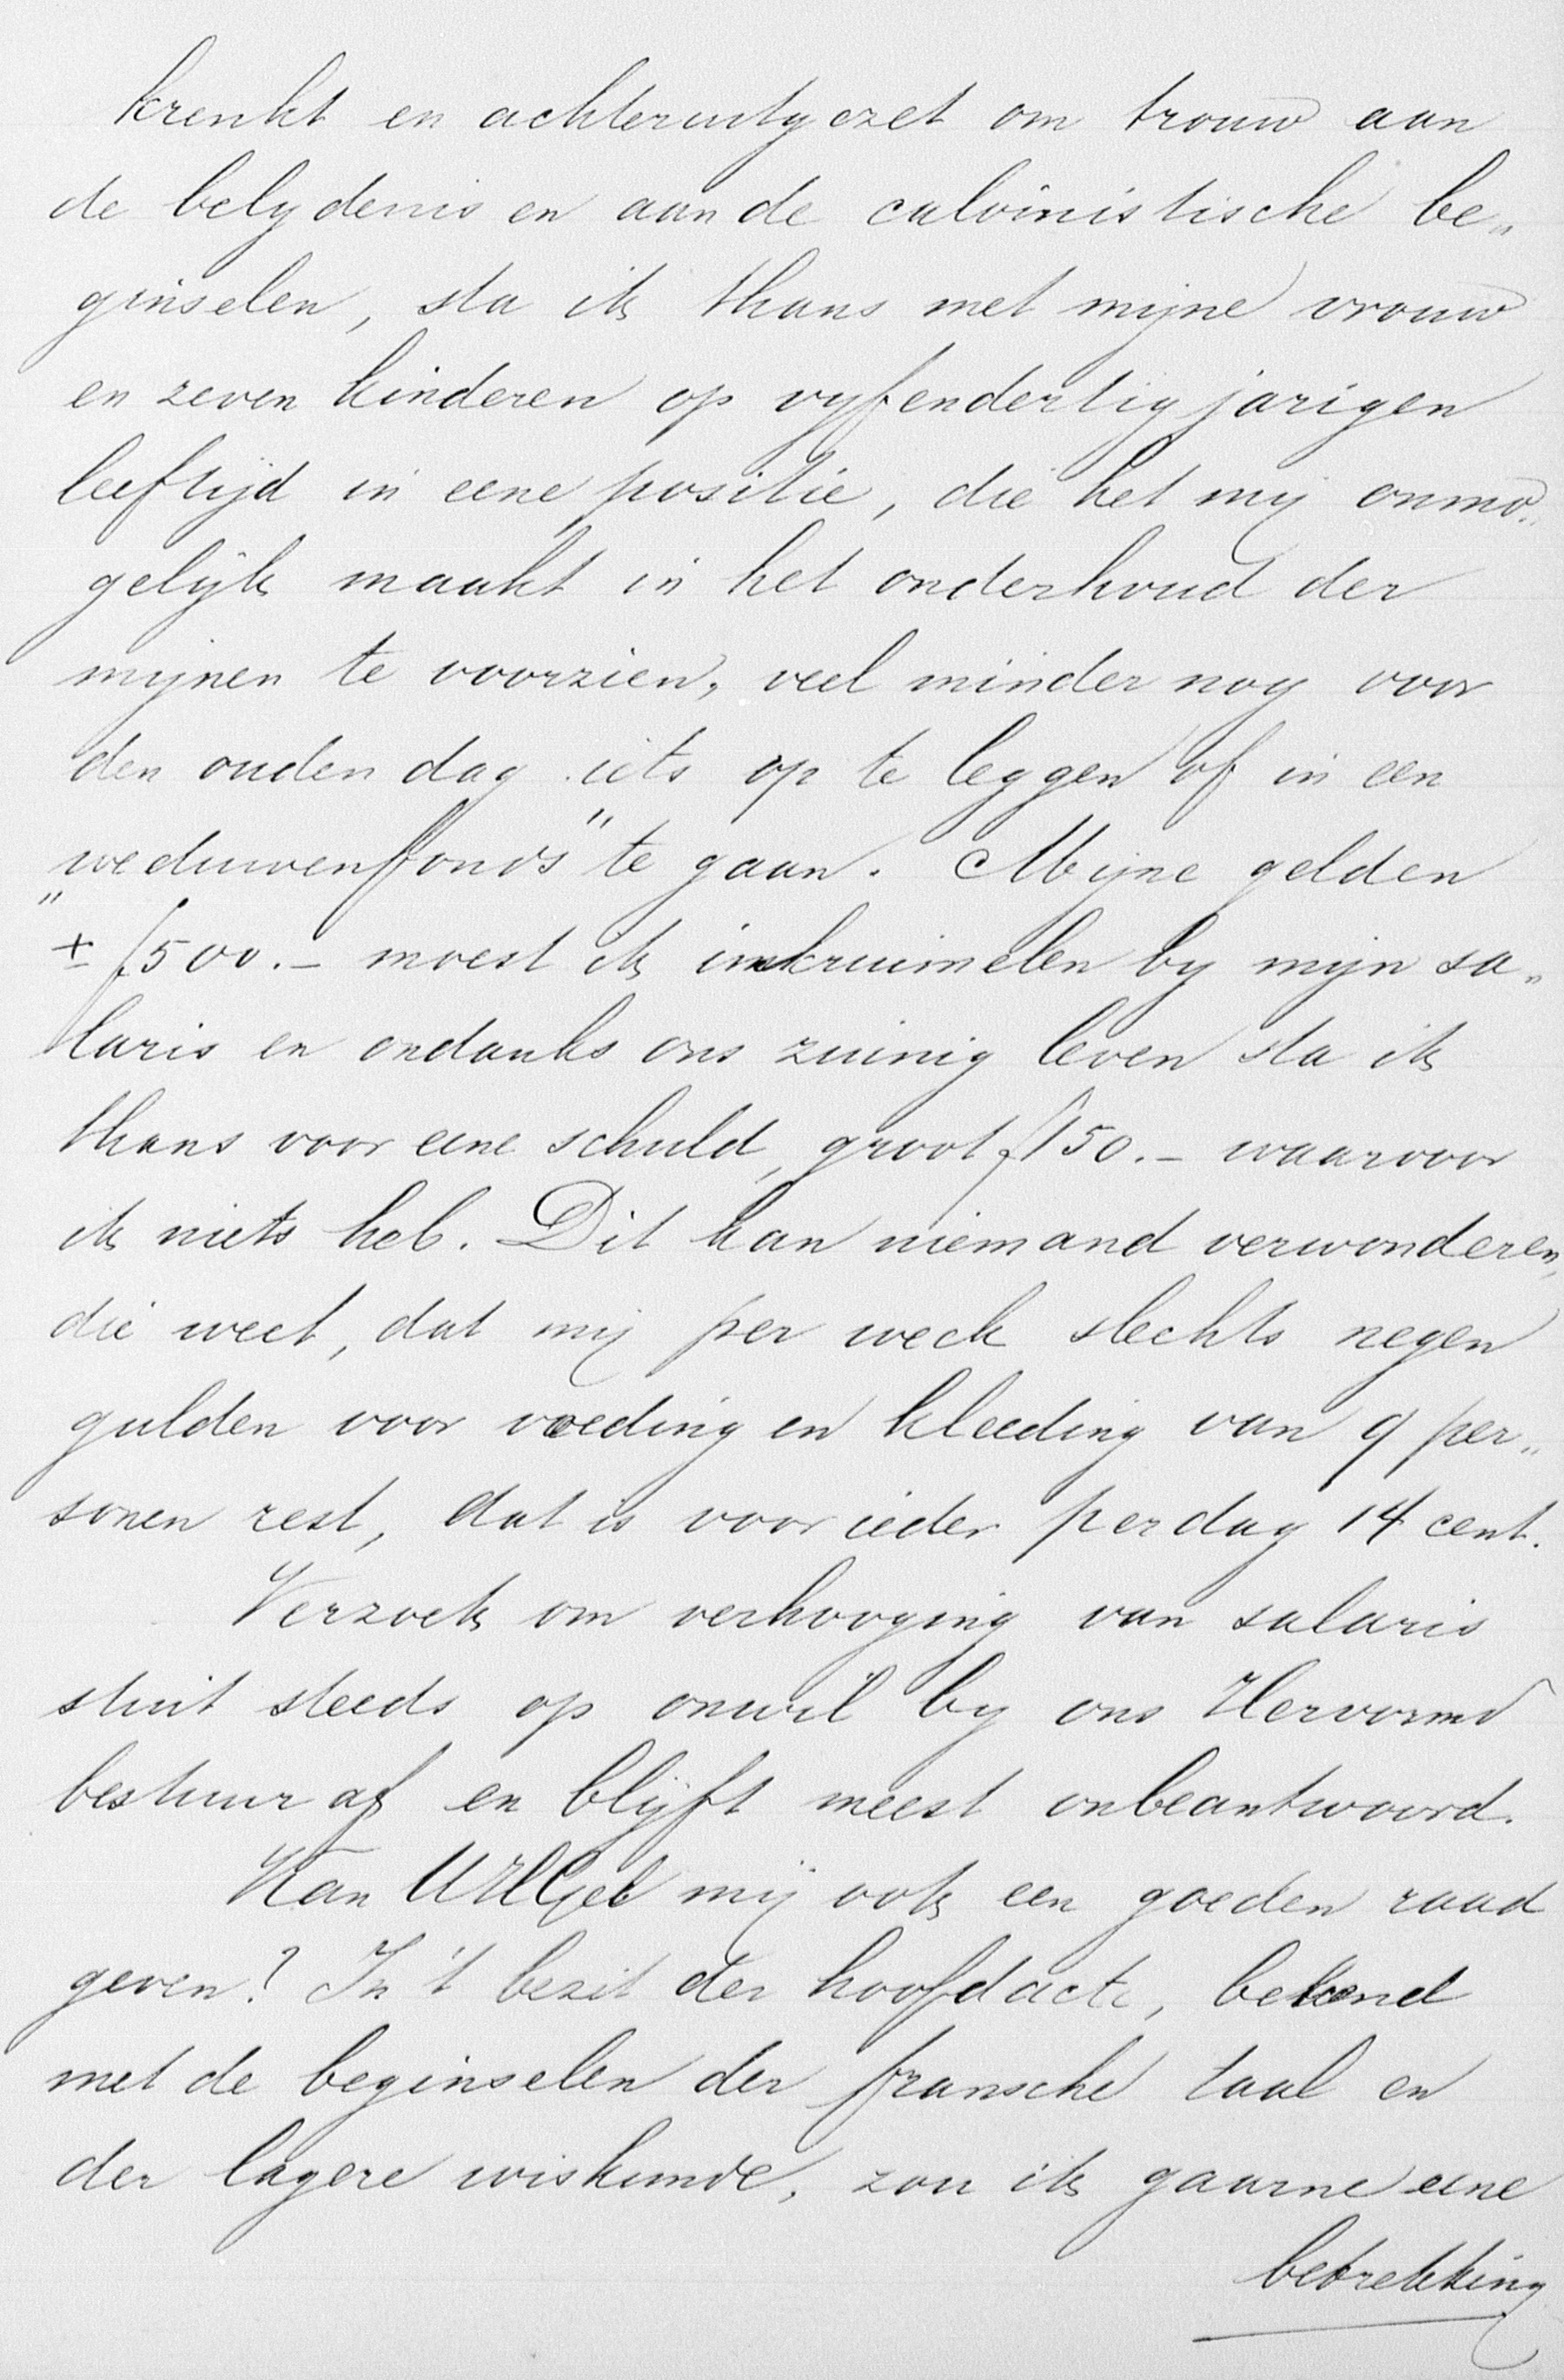 krenkt en achteruitgezet om trouw aan
de belydenis en aan de calvinistische be„
ginselen, sta ik thans met mijne vrouw
en zeven kinderen op vyfendertigjarigen
leeftijd in eene positie, die het mij onmo„
gelijk maakt in het onderhoud der
mijnen te voorzien, veel minder nog voor
den ouden dag iets op te leggen of in een
„weduwenfonds" te gaan. Mijne gelden
± f500.- moest ik inkruimelen by mijn sa„
laris en ondanks ons zuinig leven sta ik
thans voor eene schuld, groot f150.- waarvoor
ik niets heb. Dit kan niemand verwonderen,
die weet, dat mij per week slechts negen
gulden voor voeding en kleeding van 9 per„
sonen rest, dat is voor ieder per dag 14 cent.
Verzoek om verhooging van salaris
stuit steeds op onwil by ons Hervormd
bestuur af en blijft meest onbeantwoord.
Kan UHGel mij ook een goeden raad
geven? In 't bezit der hoofdacte, bekend
met de beginselen der fransche taal en
der lagere wiskunde, zou ik gaarne eene
betrekking